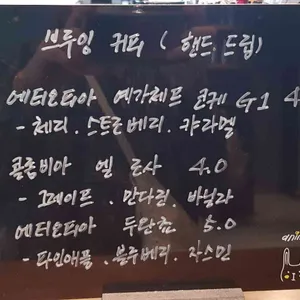 브루잉 커피 ( 핸드 드립)
에티오피아 예가체프 코케 G1 4
- 체리 . 스트로베리 . 캬라멜
콜롬비아 엘 로사 4.0
- 그레이프 . 만다린 . 바닐라
에티오피아 두완쵸 5.0
- 파인애플 . 블루베리 . 자스민